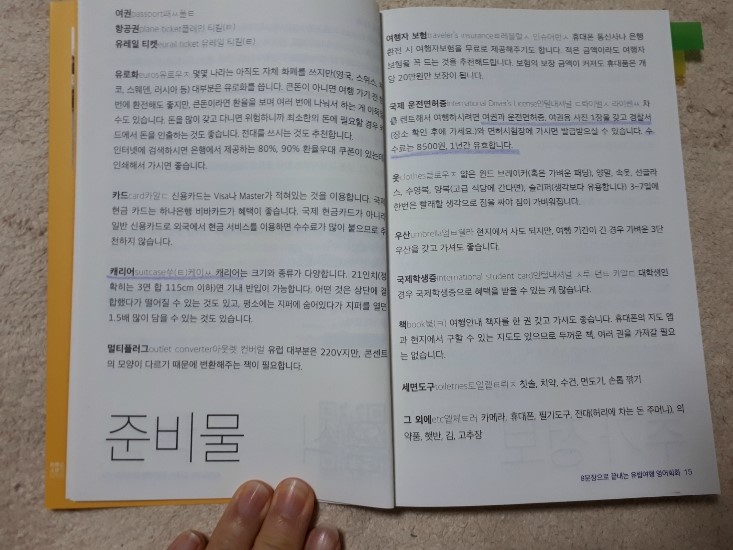 여권passport
항공권plane ticket
유레일 티켓eurail ticket 유레일 티킽(트)
유로화euros유로우ㅈ 몇몇 나라는 아직도 자체 화폐를 쓰지만(영국, 스위스,
코, 스웨덴, 러시아 등) 대부분은 유로화를 씁니다. 큰돈이 아니면 여행 가기 전 한
번에 환전해도 좋지만, 큰돈이라면 환율을 보며 여러 번에 나눠서 하는 게
수도 있습니다. 돈을 많이 갖고 다니면 위험하니까 최소한의 돈에 필요할 경우
드에서 돈을 인출하는 것도 좋습니다. 전대를 쓰시는 것도 추천합니다.
인터넷에 검색하시면 은행에서 제공하는 80%, 90% 환율우대 쿠폰이 있는데
인쇄해서 가시면 좋습니다.
카드card카알ㄷ 신용카드는 Visa나 Master가 적혀있는 것을 이용합니다. 국제
현금 카드는 하나은행 비바카드가 혜택이 좋습니다. 국제 현금카드가 아니라
일반 신용카드로 외국에서 현금 서비스를 이용하면 수수료가 많이 붙으므로 추
천하지 않습니다.
캐리어suitcase쑤(트)케이ㅆ 캐리어는 크기와 종류가 다양합니다. 21인치(정
확히는 3면 합 115cm 이하)면 기내 반입이 가능합니다. 어떤 것은 상단에 결
합했다가 떨어질 수 있는 것도 있고, 평소에는 지퍼에 숨어있다가 지퍼를 열면
1.5배 많이 담을 수 있는 것도 있습니다.
멀티플러그outlet converter아웃렛 컨버럴 유럽 대부분은 220V지만, 콘센트
의 모양이 다르기 때문에 변환해주는 잭이 필요합니다.
준비물
여행자 보험traveler's insurance 휴대폰 통신사나 은행
환전 시 여행자보험을 무료로 제공해주기도 합니다. 적은 금액이라도 여행자
보험을 꼭 드는 것을 추천해드립니다. 보험의 보장 금액이 커져도 휴대폰은 개
당 20만원만 보장이 됩니다.
국제 운전면허증International Driver's License 차
를 렌트해서 여행하시려면 여권과 운전면허증, 여권용 사진 1장을 갖고 경찰서
(장소 확인 후에 가세요.)와 면허시험장에 가시면 발급받으실 수 있습니다. 수
수료는 8500원, 1년간 유효합니다.
옷clothes클로우ㅈ 얇은 윈드 브레이커(혹은 가벼운 패딩), 양말, 속옷, 선글라
스, 수영복, 양복(고급 식당에 간다면), 슬리퍼(생각보다 유용합니다) 3~7일에
한번은 빨래할 생각으로 짐을 싸야 짐이 가벼워집니다.
우산umbrella엄브렐라 현지에서 사도 되지만, 여행 기간이 긴 경우 가벼운 3단
우산을 갖고 가셔도 좋습니다.
국제학생증international student card 대학생인
경우 국제학생증으로 혜택을 받을 수 있는 게 많습니다.
책book붘(크) 여행안내 책자를 한 권 갖고 가셔도 좋습니다. 휴대폰의 지도 앱
과 현지에서 구할 수 있는 지도도 있으므로 두꺼운 책, 여러 권을 가져갈 필요
는 없습니다.
세면도구toiletries토일렡ㅌ뤼ㅈ 칫솔, 치약, 수건, 면도기, 손톱 깎기
그 외에etc엩쎄ㅌ러 카메라, 휴대폰, 필기도구, 전대(허리에 차는 돈 주머니), 의
약품, 햇반, 김, 고추장
8문장으로 끝내는 유럽여행 영어회화 15